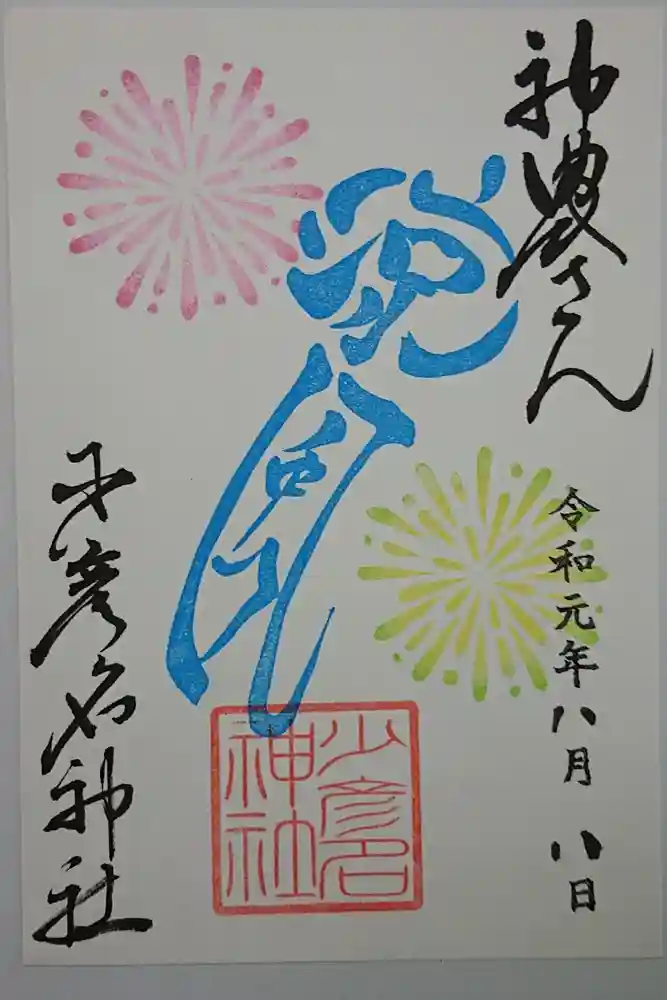 神農さん
令和元年八月 八日
少彦名
神社
少彦名神社